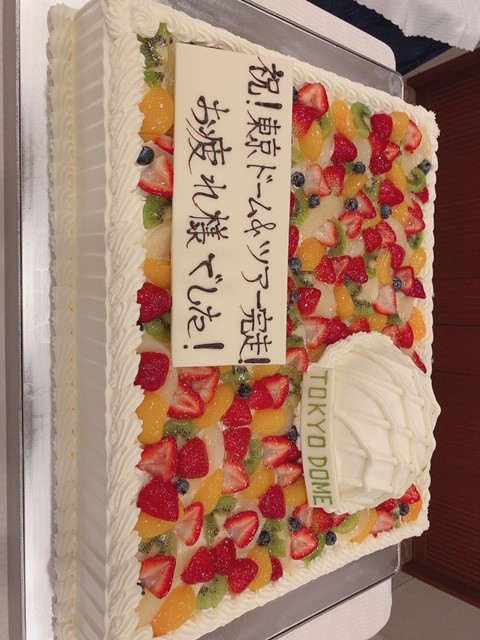 祝!東京ドーム&ツアー完走!
お疲れ様でした!
TOKYO DOME